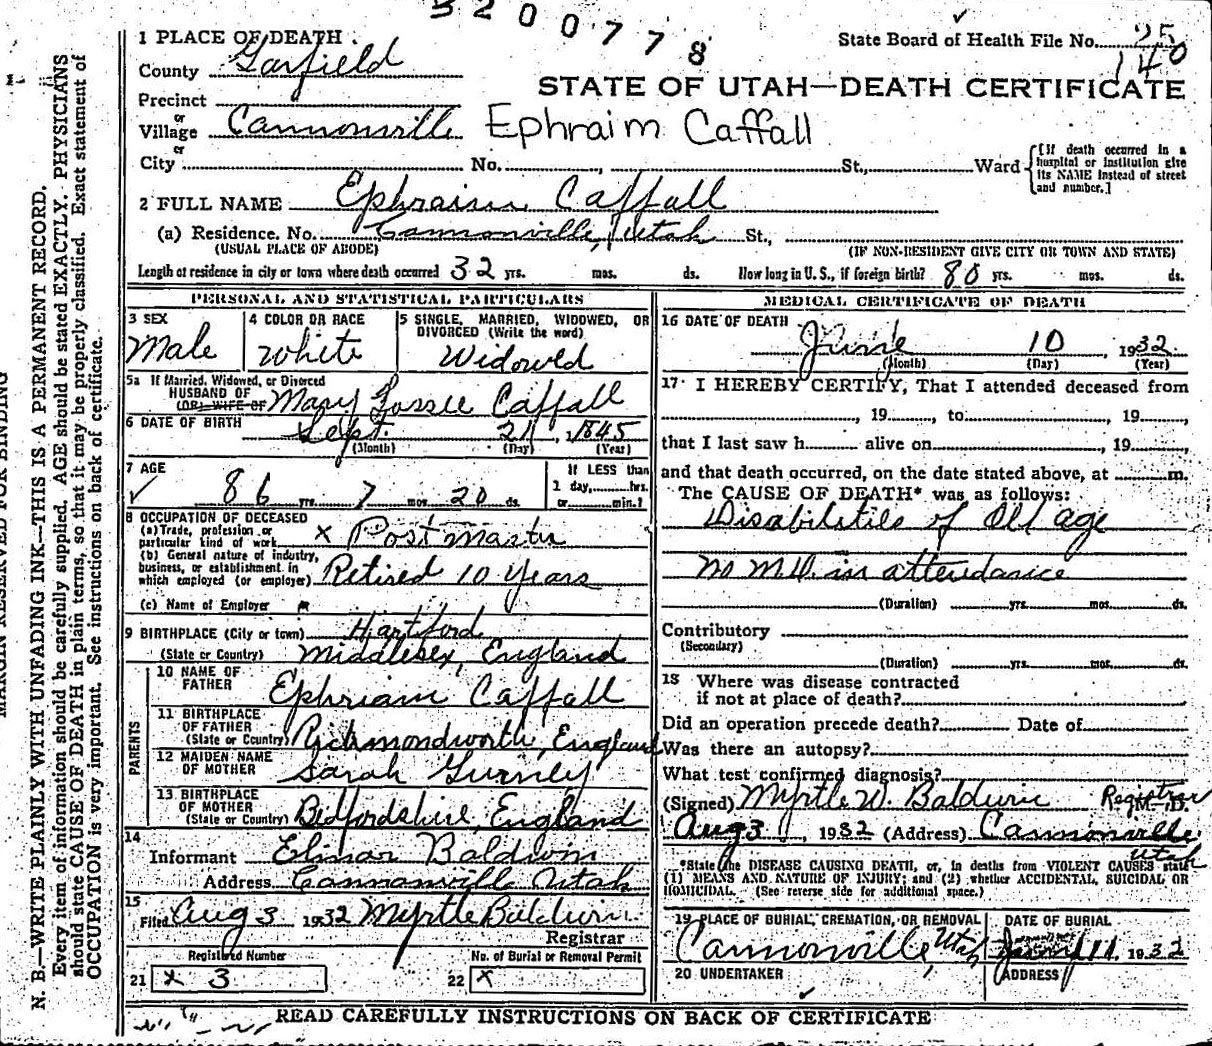 3200778
1 PLACE OF DEATH
State Board of Health File No. 25
140
County Garfield
STATE OF UTAH—DEATH CERTIFICATE
Precinct
or
Village Cannonville Ephraim Caffall
or
City No. St., Ward
[If death occurred in a hospital or institution give its NAME instead of street and number.]
2 FULL NAME Ephraim Caffall
(a) Residence. No. Cannonville, Utah St.,
(USUAL PLACE OF ABODE) (IF NON-RESIDENT GIVE CITY OR TOWN AND STATE)
Length of residence in city or town where death occurred 32 yrs. mos. ds. How long in U. S., if foreign birth? 80 yrs. mos. ds.
PERSONAL AND STATISTICAL PARTICULARS
3 SEX
Male
4 COLOR OR RACE
White
5 SINGLE, MARRIED, WIDOWED, OR
DIVORCED (Write the word)
Widowed
5a If Married, Widowed, or Divorced
HUSBAND OF
(OR) WIFE OF Mary Caffall
6 DATE OF BIRTH Sept. 21, 1845
(Month) (Day) (Year)
7 AGE
86 yrs. 7 mos. 20 ds.
If LESS than
1 day, hrs.
or min.?
8 OCCUPATION OF DECEASED
(a) Trade, profession or
particular kind of work X Postmaster
(b) General nature of industry,
business, or establishment in
which employed (or employer) Retired 10 years
(c) Name of Employer
9 BIRTHPLACE (City or town) Hartford
(State or Country) Middlesex, England
PARENTS
10 NAME OF
FATHER Ephriam Caffall
11 BIRTHPLACE
OF FATHER
(State or Country) Richmondworth, England
12 MAIDEN NAME
OF MOTHER Sarah Gurney
13 BIRTHPLACE
OF MOTHER
(State or Country) Bidfordshire, England
14
Informant Elinor Baldwin
Address Cannonville Utah
15
Filed Aug 3 1932 Myrtle Baldwin
Registrar
Registered Number
21 x 3
No. of Burial or Removal Permit
22 x
MEDICAL CERTIFICATE OF DEATH
16 DATE OF DEATH
June 10, 1932
(Month) (Day) (Year)
17 I HEREBY CERTIFY, That I attended deceased from
, 19, to, 19,
that I last saw h alive on, 19,
and that death occurred, on the date stated above, at m.
The CAUSE OF DEATH* was as follows:
Disabilities of Old age
No M.D. in attendance
(Duration) yrs. mos. ds.
Contributory
(Secondary)
(Duration) yrs. mos. ds.
18 Where was disease contracted
if not at place of death?
Did an operation precede death? Date of
Was there an autopsy?
What test confirmed diagnosis?
(Signed) Myrtle W. Baldwin Registrar M. D.
Aug 3, 1932 (Address) Cannonville
Utah
*State the DISEASE CAUSING DEATH, or, in deaths from VIOLENT CAUSES state
(1) MEANS AND NATURE OF INJURY; and (2) whether ACCIDENTAL, SUICIDAL OR
HOMICIDAL. (See reverse side for additional space.)
19 PLACE OF BURIAL, CREMATION, OR REMOVAL
Cannonville, Utah
DATE OF BURIAL
11, 1932
20 UNDERTAKER
ADDRESS
READ CAREFULLY INSTRUCTIONS ON BACK OF CERTIFICATE
MARGIN RESERVED FOR BINDING
N. B.—WRITE PLAINLY WITH UNFADING INK—THIS IS A PERMANENT RECORD.
Every item of information should be carefully supplied. AGE should be stated EXACTLY. PHYSICIANS
should state CAUSE OF DEATH in plain terms, so that it may be properly classified. Exact statement of
OCCUPATION is very important. See instructions on back of certificate.